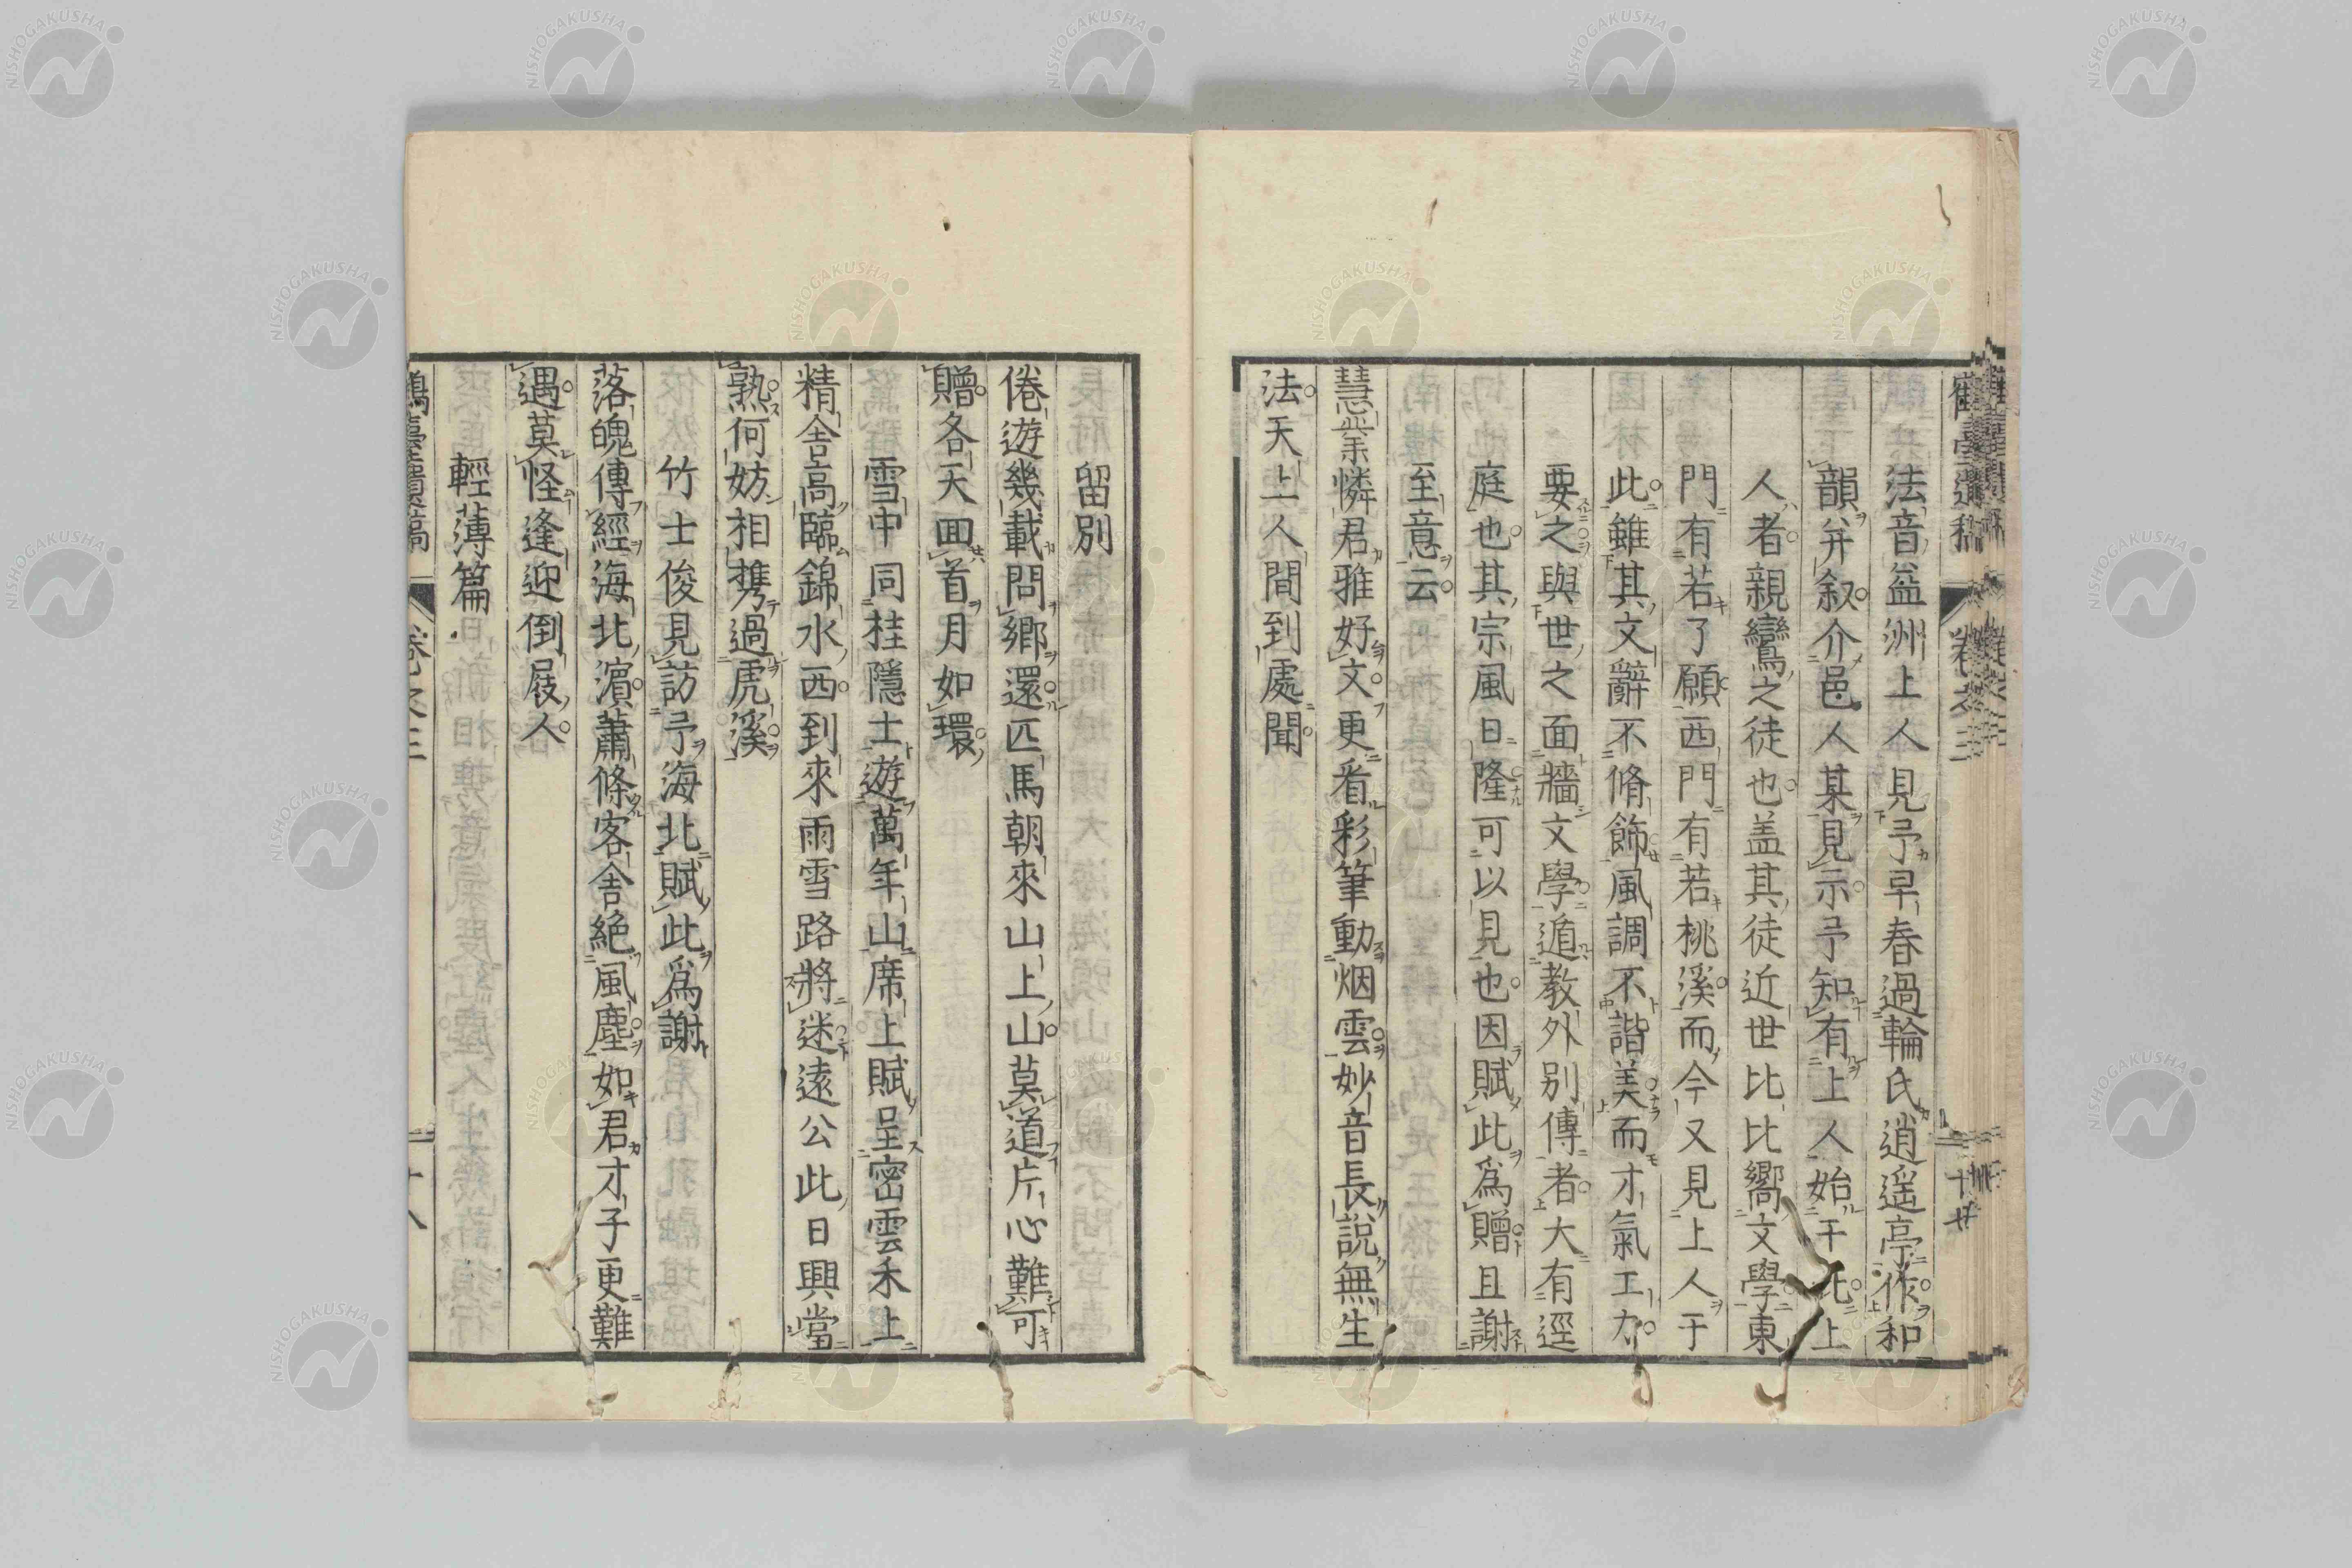 法音益洲上人見予早春過輪氏逍遥亭作和
韻并叙介邑人某見示予知有上人始于此上
人者親鸞之徒也盖其徒近世比比嚮文學東
門有若了願西門有若桃溪而今又見上人于
此雖其文辭不脩飾風調不諧美而才氣工力
要之與世之面牆文學遁教外別傳者大有逕
庭也其宗風日隆可以見也因賦此爲贈且謝
至意云
慧業憐君雅好文更看彩筆動烟雲妙音長說無生
法天上人間到處聞
留別
倦遊幾載問鄉還匹馬朝來山上山莫道片心難可
贈各天囬首月如環
雪中同桂隱士遊萬年山席上賦呈密雲禾上
精舍高臨錦水西到來雨雪路將迷遠公此日興當
熟何妨相携過虎溪
竹士俊見訪予海北賦此爲謝
落魄傳經海北濵蕭條客舍絶風塵如君才子更難
遇莫怪逢迎倒屐人
輕薄篇
鶴臺遺稿 卷之三 十八
NISHOGAKUSHA